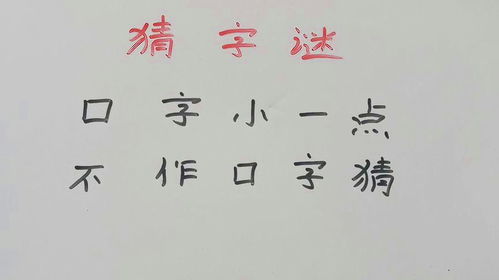 猜字谜
口字小一点
不作口字猜